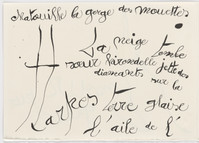 chatouille la gorge des mouettes
La neige tombe
sœur hirondelle jette des
diamants sur la
Harpes terre glaise
l'aile de l'é